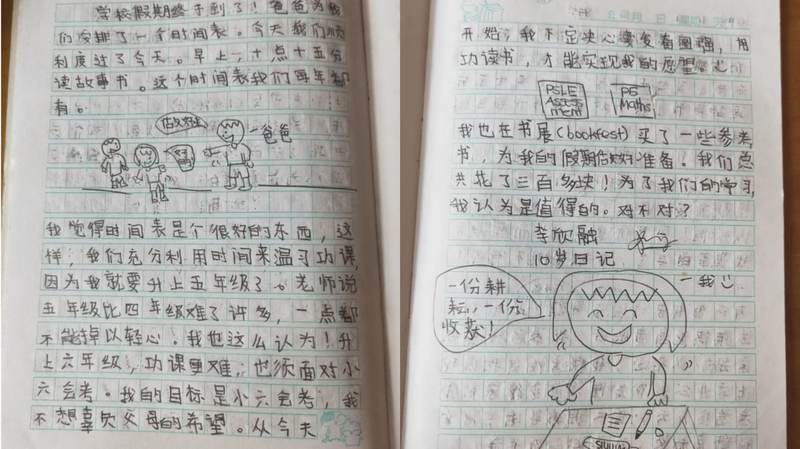 学校假期终于到了！爸爸为我
们安排了一个时间表。今天我们顺
利度过了今天。早上，十点十五分
读故事书。这个时间表我们每年都
有。
爸爸
我觉得时间表是个很好的东西，这
样，我们充分利用时间来温习功课，
因为我就要升上五年级了。老师说
五年级比四年级难了许多，一点都
不能掉以轻心。我也这么认为！升
上六年级，功课更难，也须面对小
六会考。我的目标是小六会考，我
不想辜负父母的希望。从今天
开始，我下定决心要发奋图强，用
功读书，才能实现我的愿望。
PSLE
Assess
ment
P5
Maths
我也在书展(bookfest)买了一些参考
书，为我的假期做好准备。我们总
共花了三百多块！为了我们的学习，
我认为是值得的。对不对？
李欣融
10岁日记
一份耕
耘，一份
收获！
—我